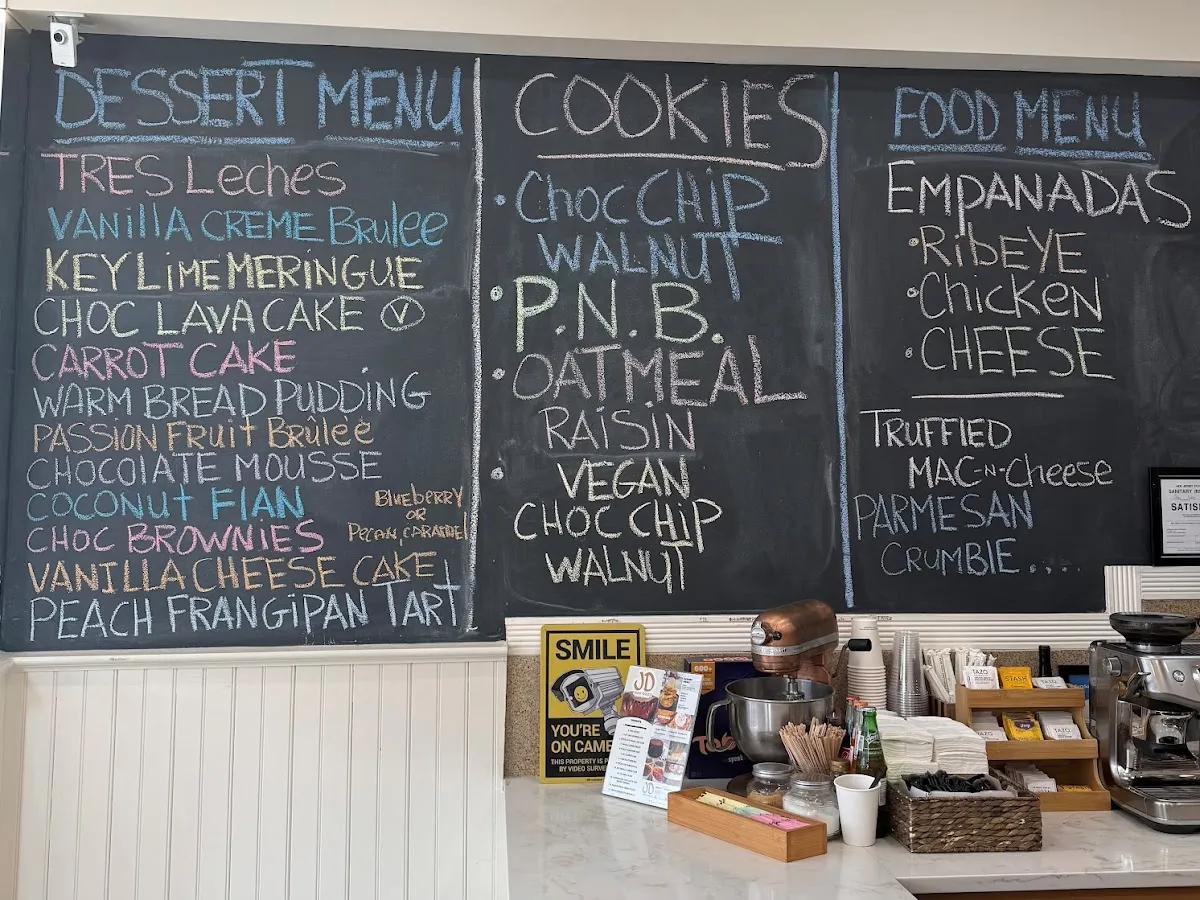 DESSERT MENU
TRES Leches
VANILLA CREME Brulee
KEY LIME MERINGUE
CHOC LAVA CAKE V
CARROT CAKE
WARM BREAD PUDDING
PASSION FRUIT BRûLEE
CHOCOLATE MOUSSE
COCONUT FLAN
BLUEBERRY
OR
PECAN, CARAMEL
CHOC BROWNIES
VANILLA CHEESE CAKE
PEACH FRANGIPAN TART
COOKIES
• Choc CHIP
WALNUT
• P.N.B.
• OATMEAL
RAISIN
• VEGAN
CHOC CHIP
WALNUT
FOOD MENU
EMPANADAS
• RibEYE
• ChickEN
• CHEESE
TRUFFLED
MAC-N-Cheese
PARMESAN
CRUMBLE....
SANITARY
SATIS
SMILE
YOU'RE
ON CAME
THIS PROPERTY IS P
BY VIDEO SURVE
JD
JD
600+
TAZO
STASH
TAZO
TAZO
TAZO